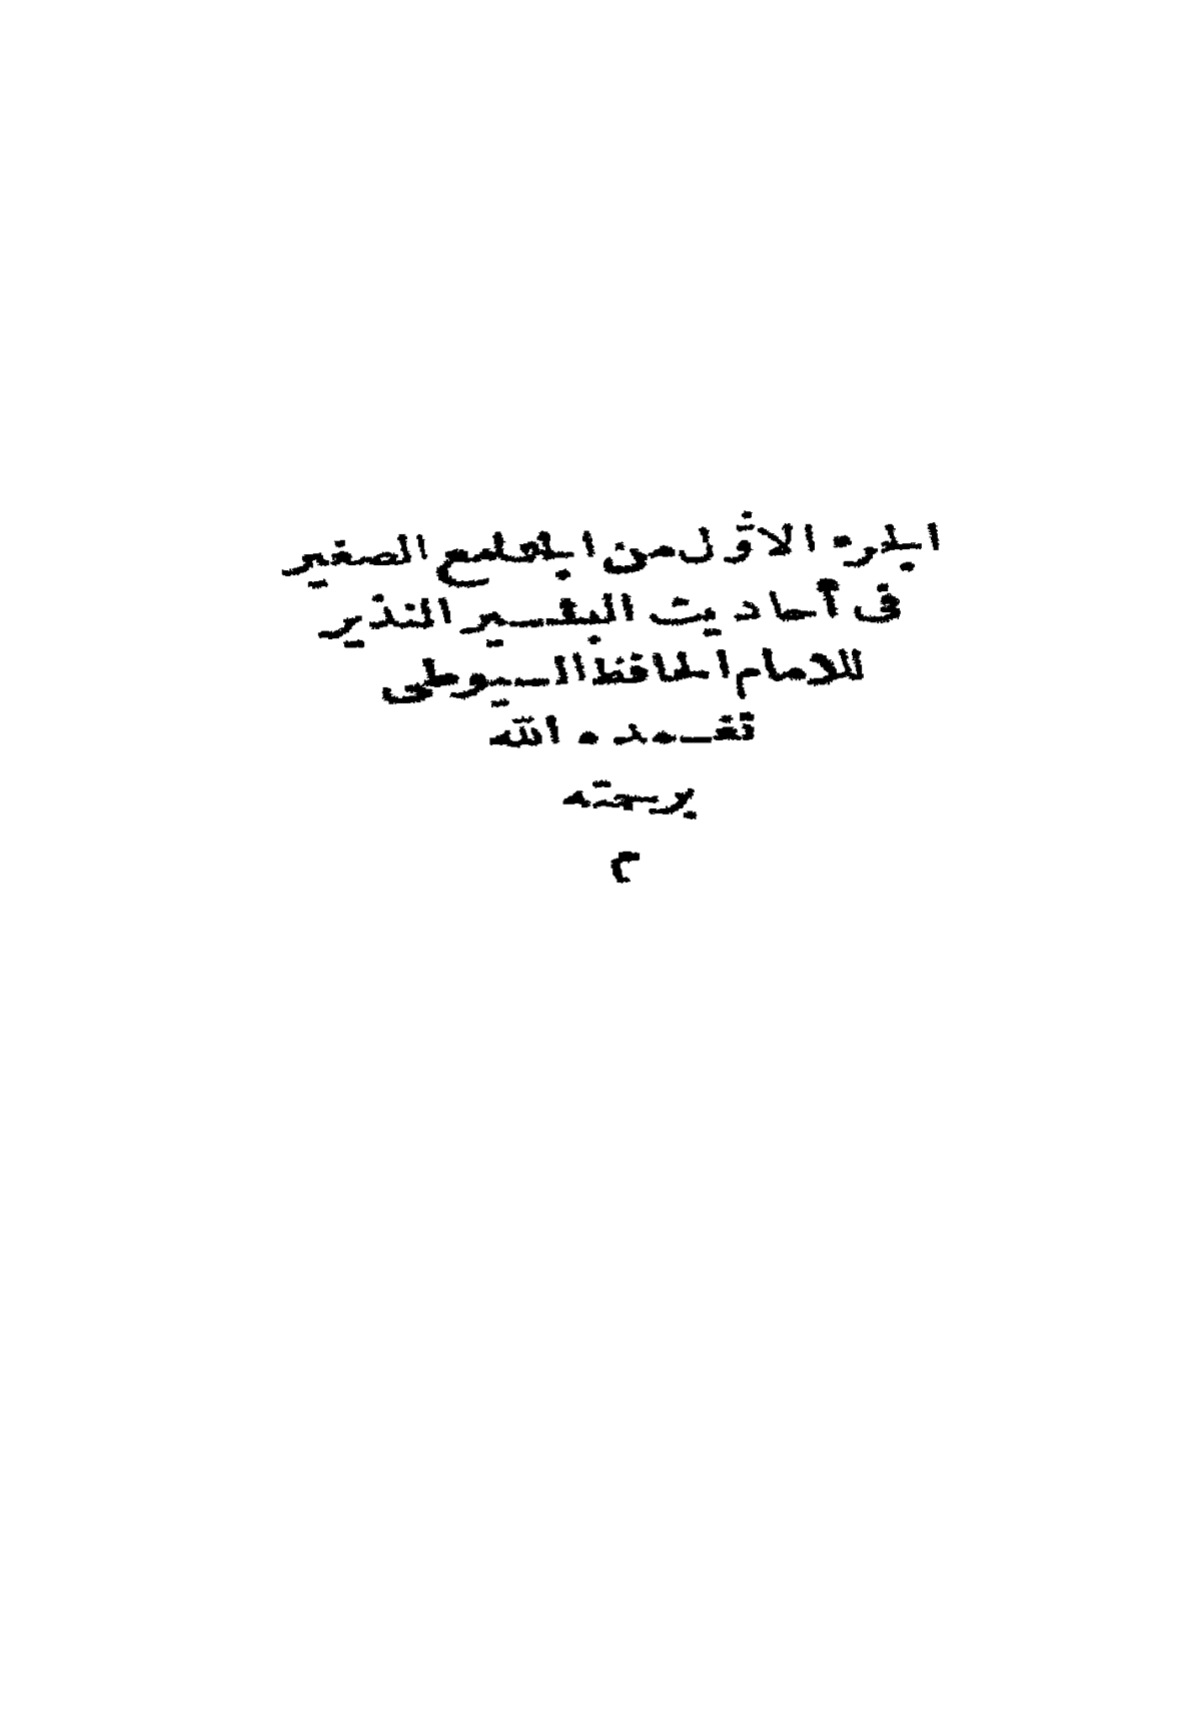 الجزء الاوّل من الجامع الصغير
فى أحاديث البشير النذير
للامام الحافظ السيوطى
تغمده الله
برحمته
م